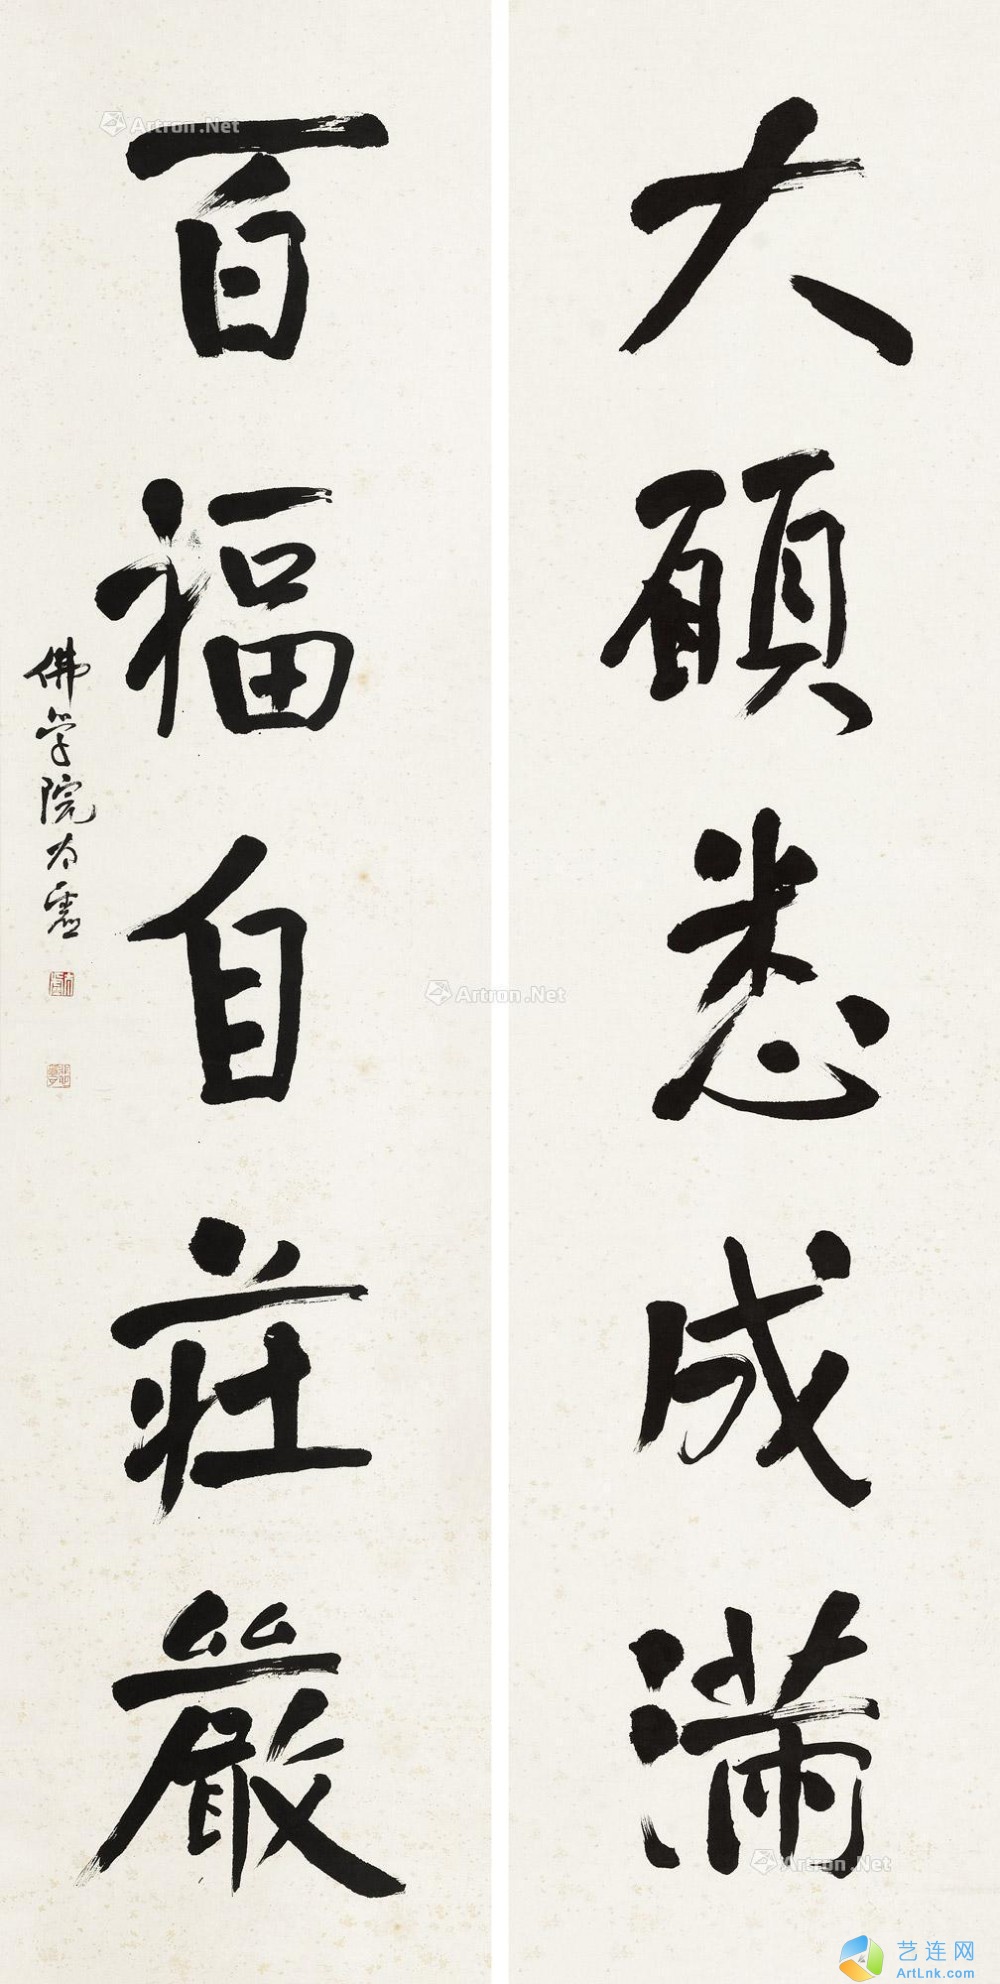 大願悉成滿
百福自莊嚴
佛学院太虛
Artron.Net
Artron.Net
Artron.Net
艺连网
ArtLnk.com